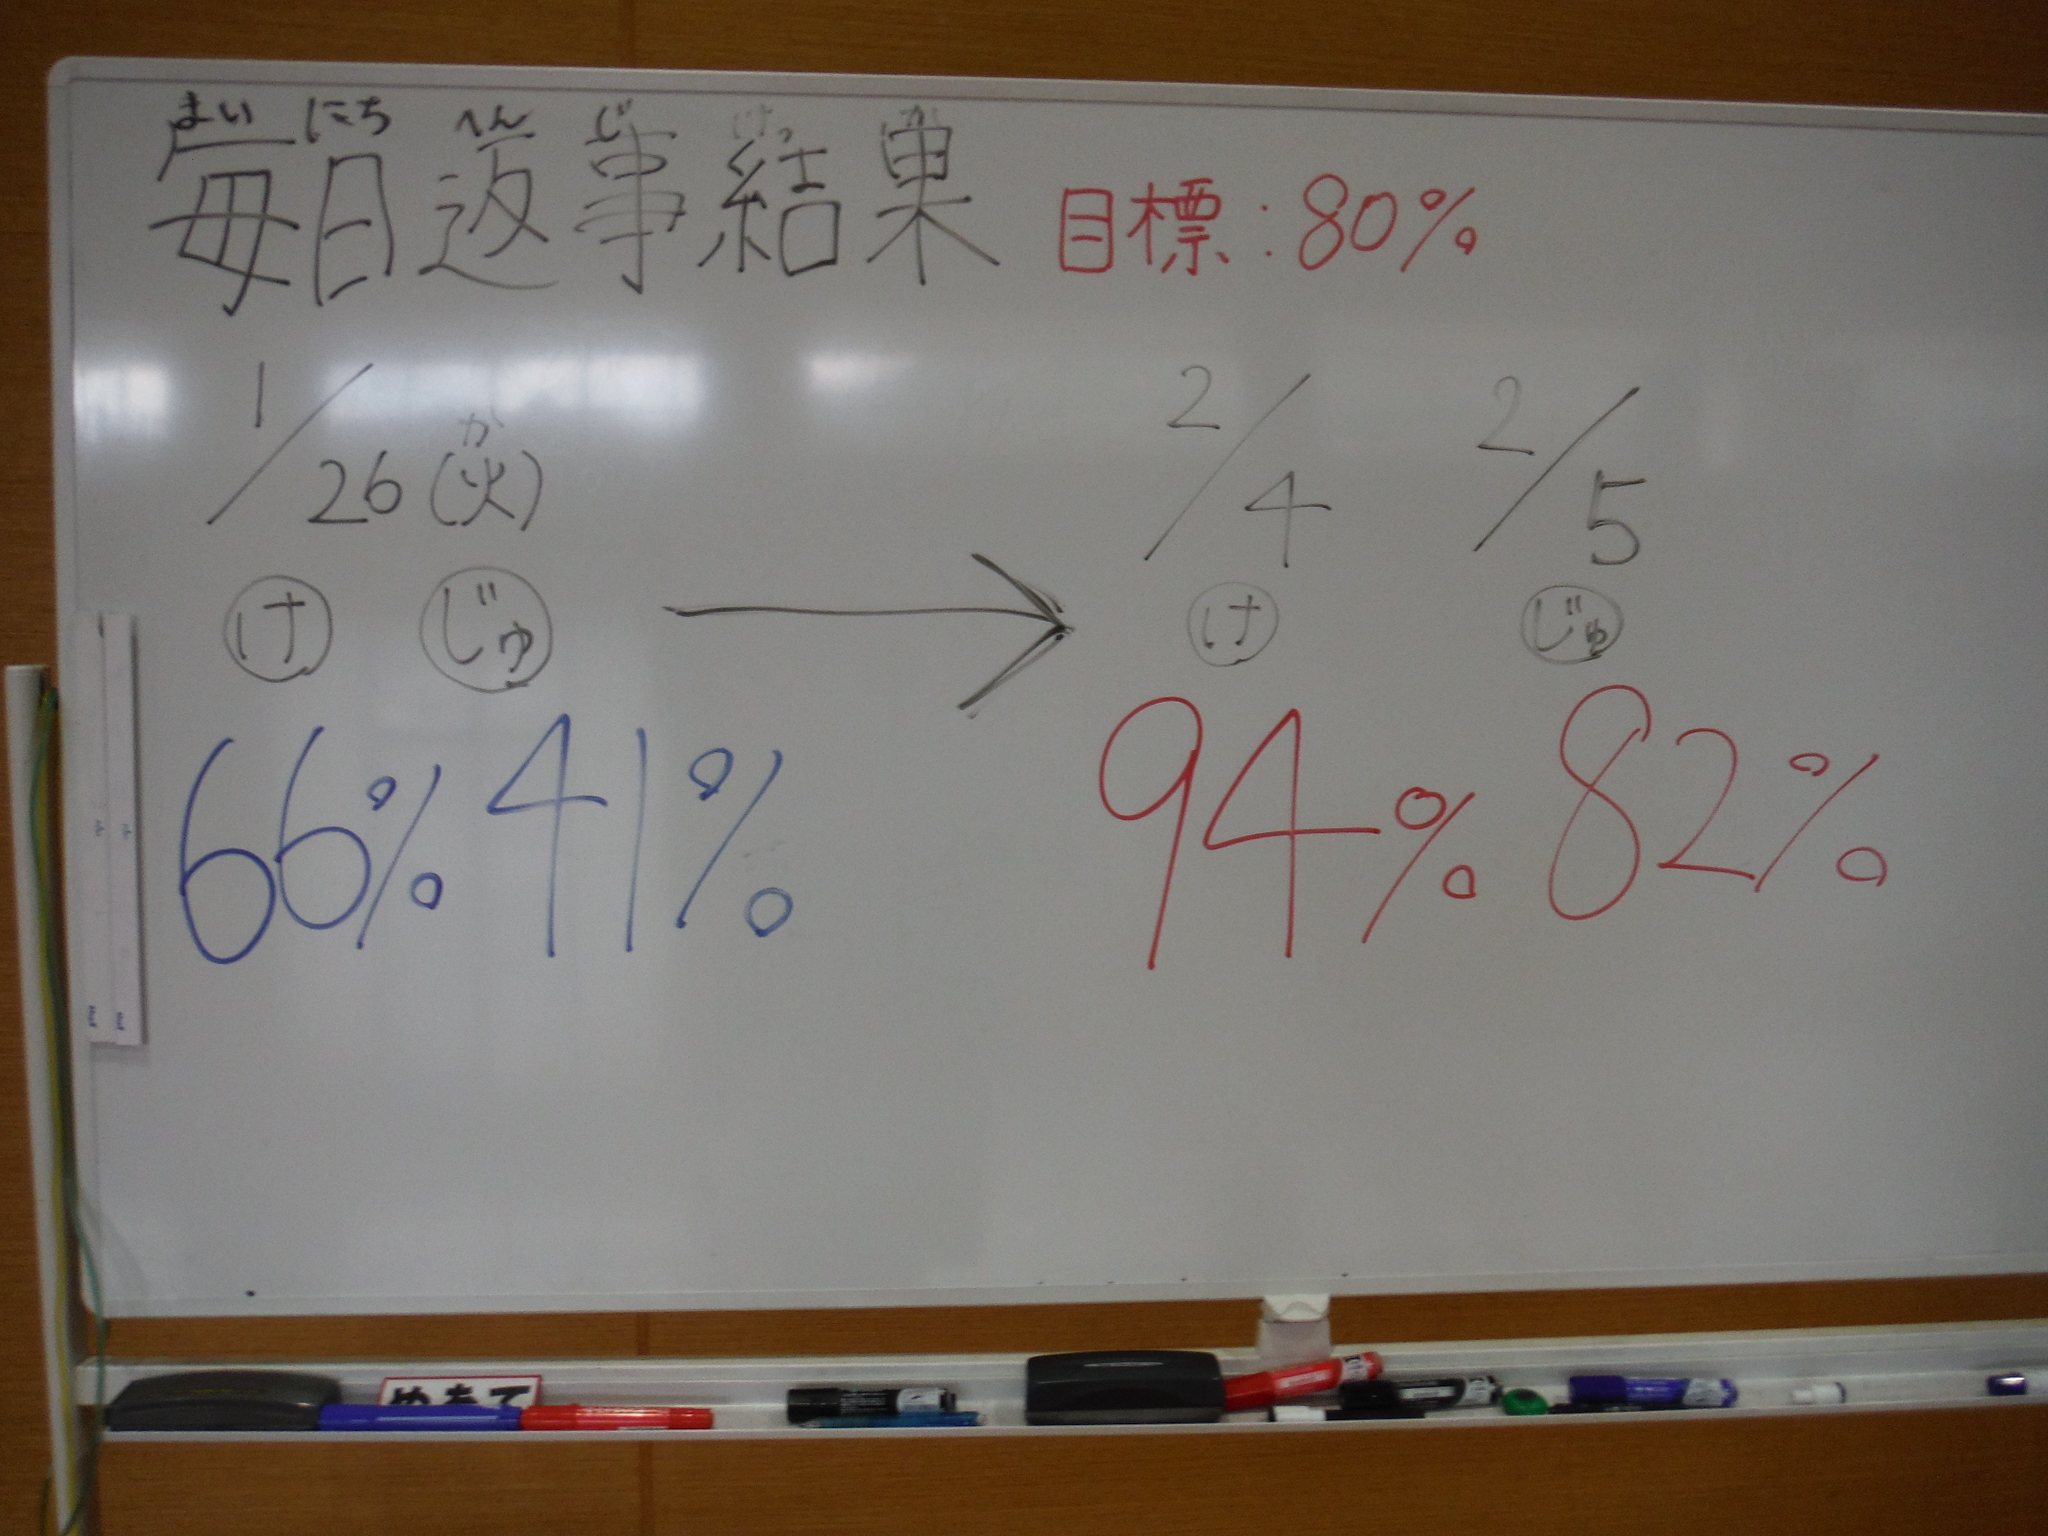 まいにちへんじけっか
毎日返事結果 目標:80%
か
1/26(火) 2/4 2/5
け じゅ → け じゅ
66% 41% 94% 82%
めあて